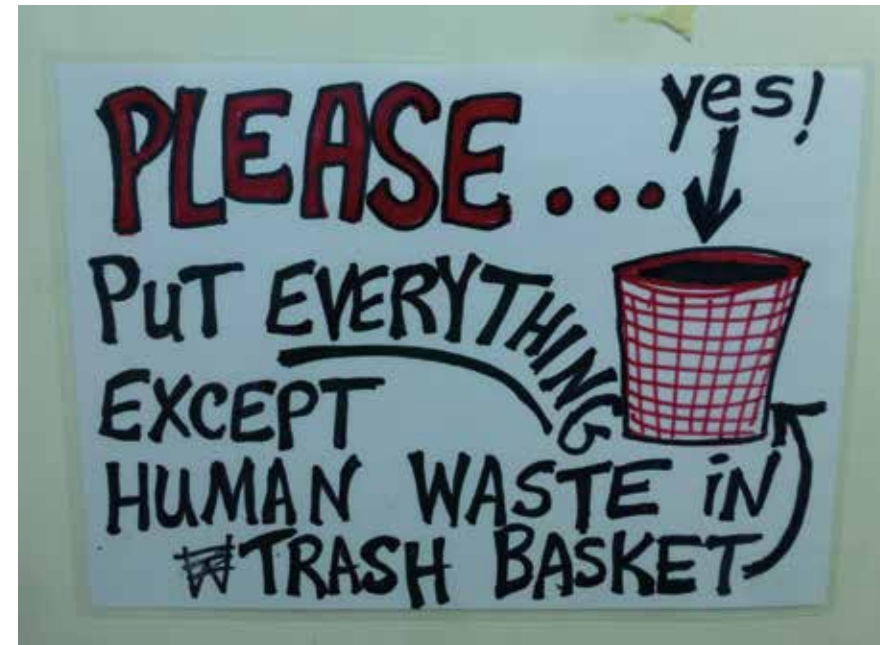 PLEASE...
yes!
PUT EVERYTHING
EXCEPT
HUMAN WASTE iN
TRASH BASKET